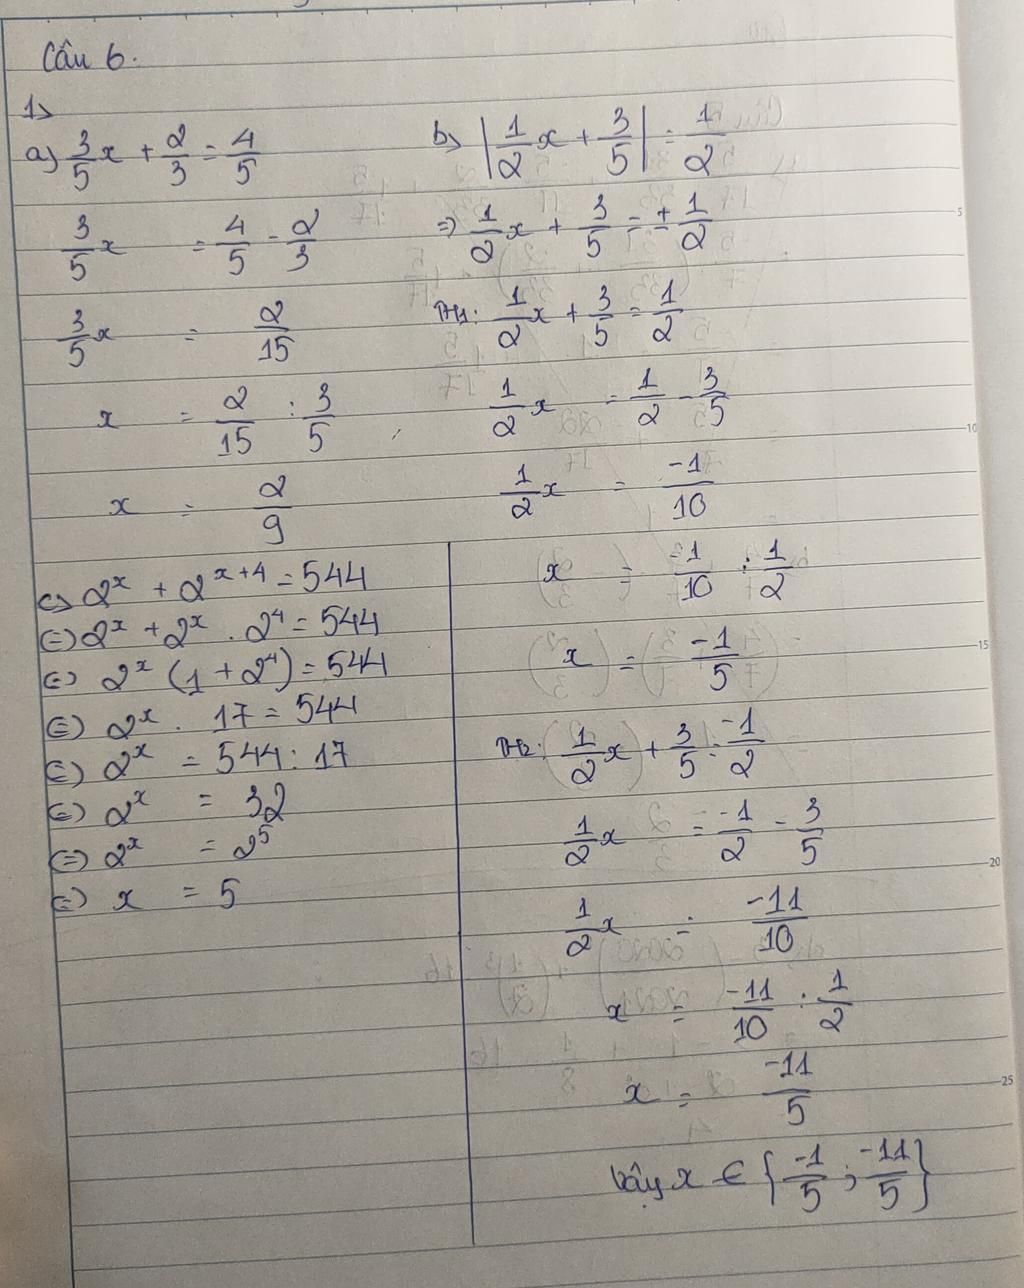 Câu 6.
1>
a) 3/5 x + 2/3 = 4/5
3/5 x = 4/5 - 2/3
3/5 x = 2/15
x = 2/15 : 3/5
x = 2/9
b) |1/2 x + 3/5| = 1/2
=> 1/2 x + 3/5 = ± 1/2
TH1: 1/2 x + 3/5 = 1/2
1/2 x = 1/2 - 3/5
1/2 x = -1/10
x = -1/10 : 1/2
x = -1/5
TH2: (1/2 x) + 3/5 = -1/2
1/2 x = -1/2 - 3/5
1/2 x = -11/10
x = -11/10 : 1/2
x = -11/5
Vậy x ∈ {-1/5 ; -11/5}
c) 2^x + 2^(x+4) = 544
(=) 2^x + 2^x . 2^4 = 544
(=) 2^x (1 + 2^4) = 544
(=) 2^x . 17 = 544
(=) 2^x = 544 : 17
(=) 2^x = 32
(=) 2^x = 2^5
(=) x = 5
5
10
15
20
25